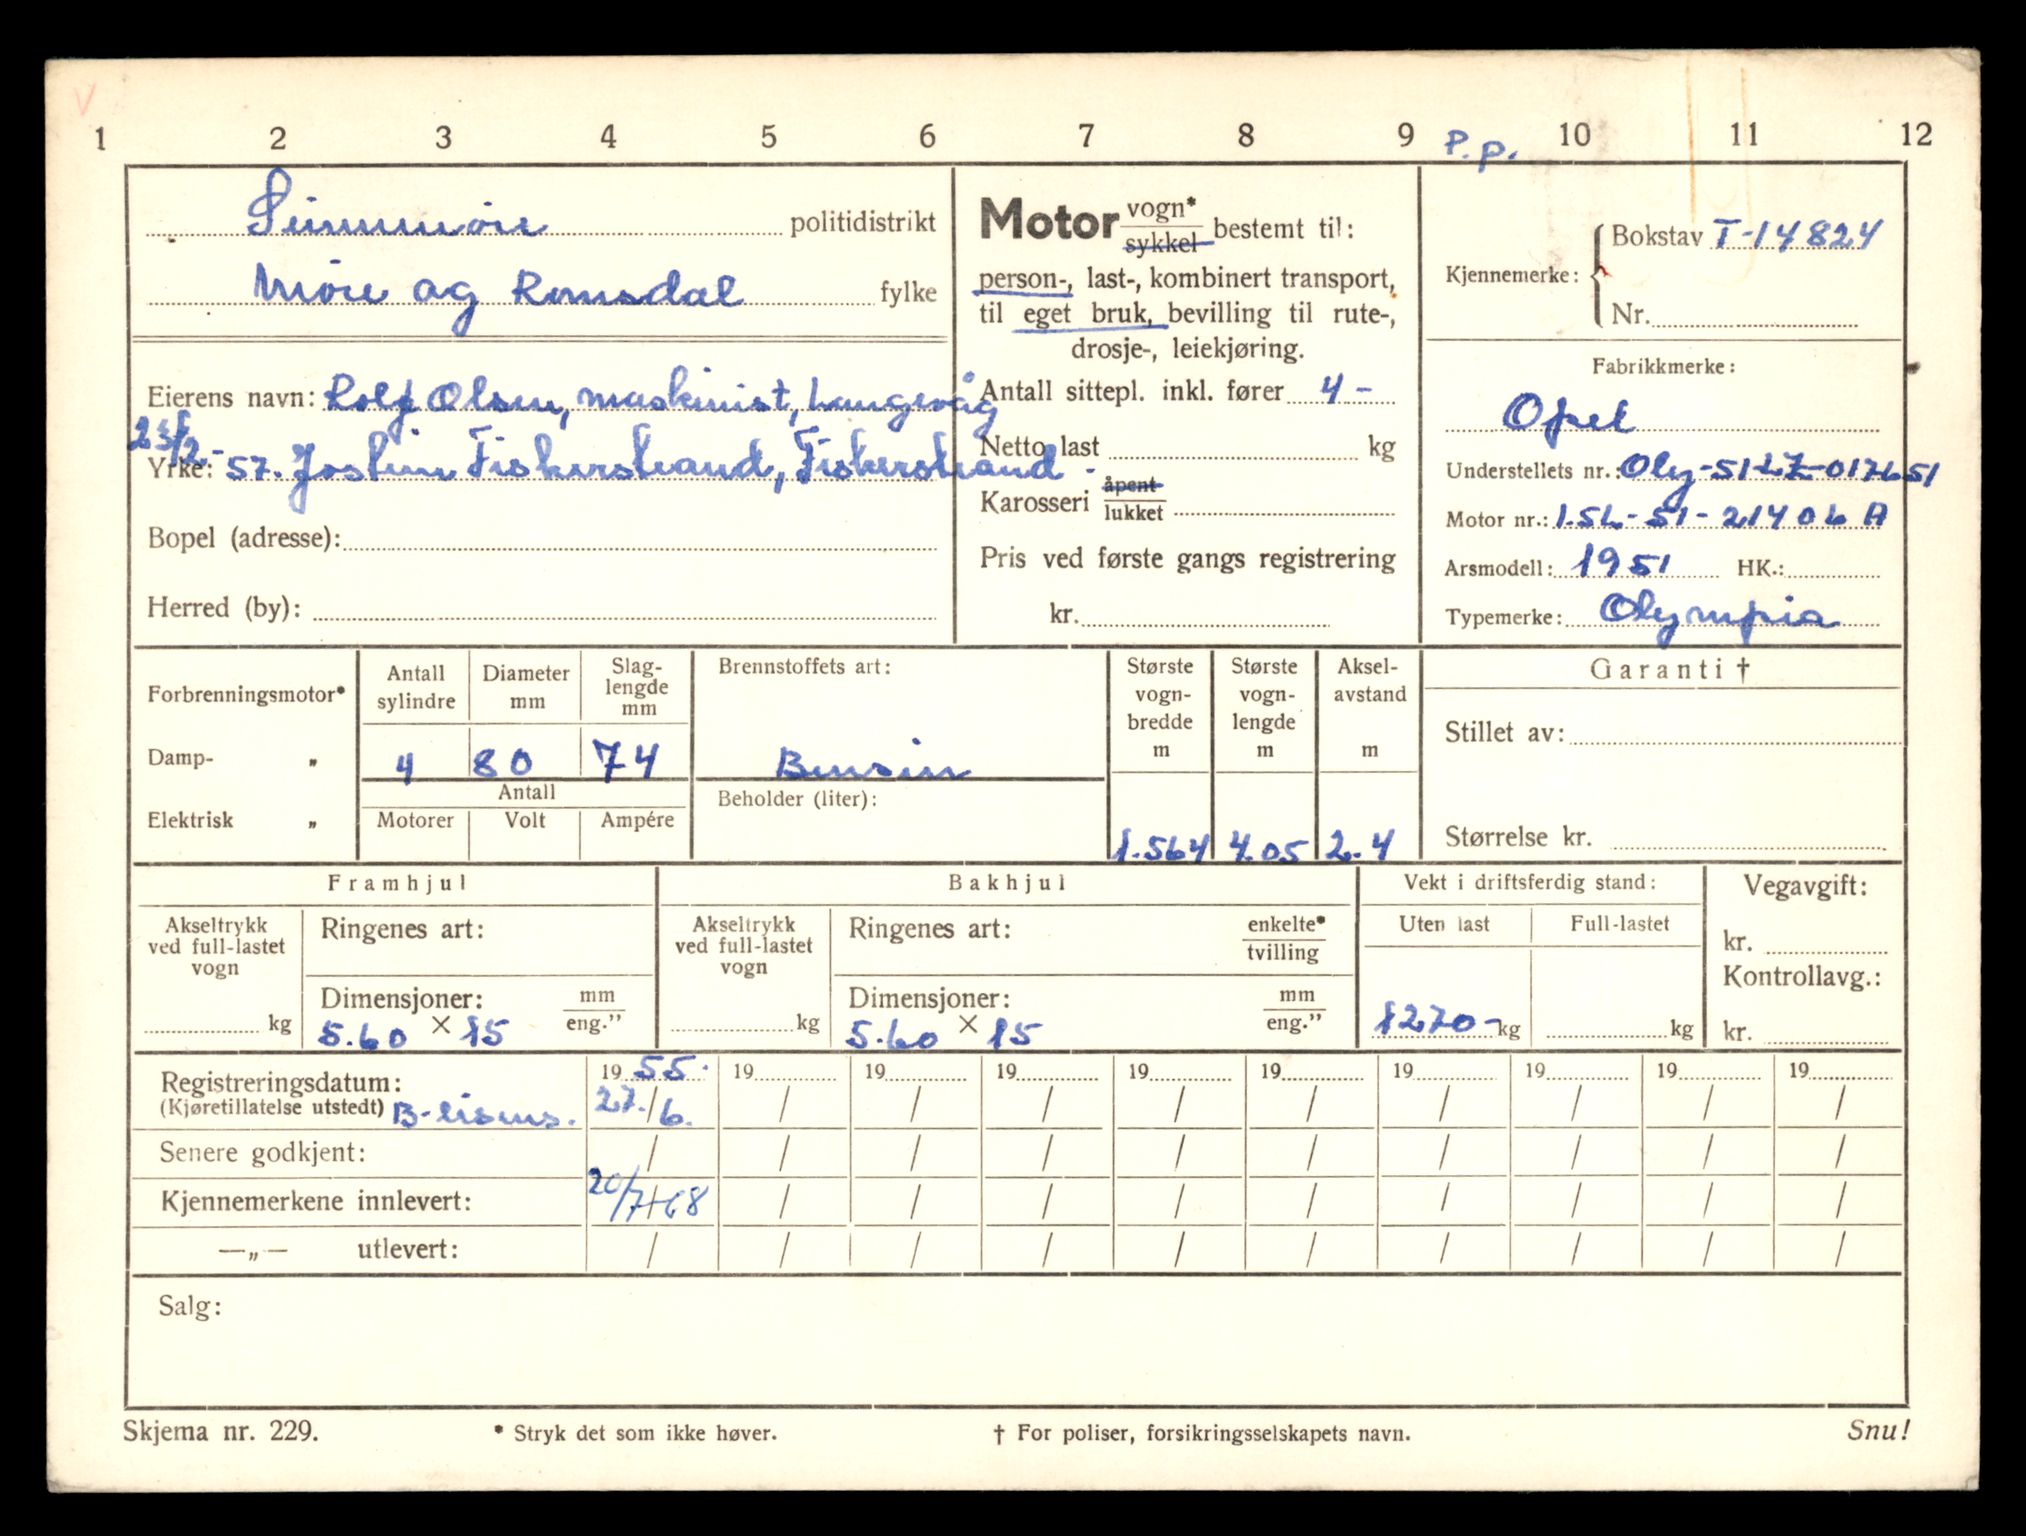 V
1 2 3 4 5 6 7 8 9 P.p. 10 11 12
Sunnmøre politidistrikt
Møre og Romsdal fylke
Eierens navn: Rolf Olsen, maskinist, Langevåg
Yrke: 57. Jostein Fiskerstrand, Fiskerstrand
Bopel (adresse):
Herred (by):
Motor vogn* sykkel bestemt til:
person-, last-, kombinert transport,
til eget bruk, bevilling til rute-,
drosje-, leiekjøring.
Antall sittepl. inkl. fører 4 -
Netto last kg
Karosseri åpent lukket
Pris ved første gangs registrering
kr.
Kjennemerke: Bokstav T-14824
Nr.
Fabrikkmerke:
Opel
Understellets nr.: Oly-51-LZ-017651
Motor nr.: 1.5L-51-21406 A
Arsmodell: 1951 HK.:
Typemerke: Olympia
Forbrenningsmotor*
Damp- „
Elektrisk „
Antall sylindre
Diameter mm
Slag-lengde mm
4 80 74
Antall
Motorer Volt Ampére
Brennstoffets art:
Bensin
Beholder (liter):
Største vogn-bredde m
Største vogn-lengde m
Aksel-avstand m
1.564 4.05 2.4
Garanti †
Stillet av:
Størrelse kr.
Framhjul
Akseltrykk ved full-lastet vogn
kg
Ringenes art:
Dimensjoner: mm eng.”
5.60 × 15
Bakhjul
Akseltrykk ved full-lastet vogn
kg
Ringenes art: enkelte* tvilling
Dimensjoner: mm eng.”
5.60 × 15
Vekt i driftsferdig stand:
Uten last Full-lastet
1270- kg kg
Vegavgift:
kr.
Kontrollavg.:
kr.
Registreringsdatum: 19 55. 19 19 19 19 19 19 19 19 19
(Kjøretillatelse utstedt) B-lisens. 27./6. / / / / / / / / /
Senere godkjent: / / / / / / / / / /
Kjennemerkene innlevert: 20/7-68 / / / / / / / / /
—„— utlevert: / / / / / / / / / /
Salg:
Skjema nr. 229. * Stryk det som ikke høver. † For poliser, forsikringsselskapets navn. Snu!